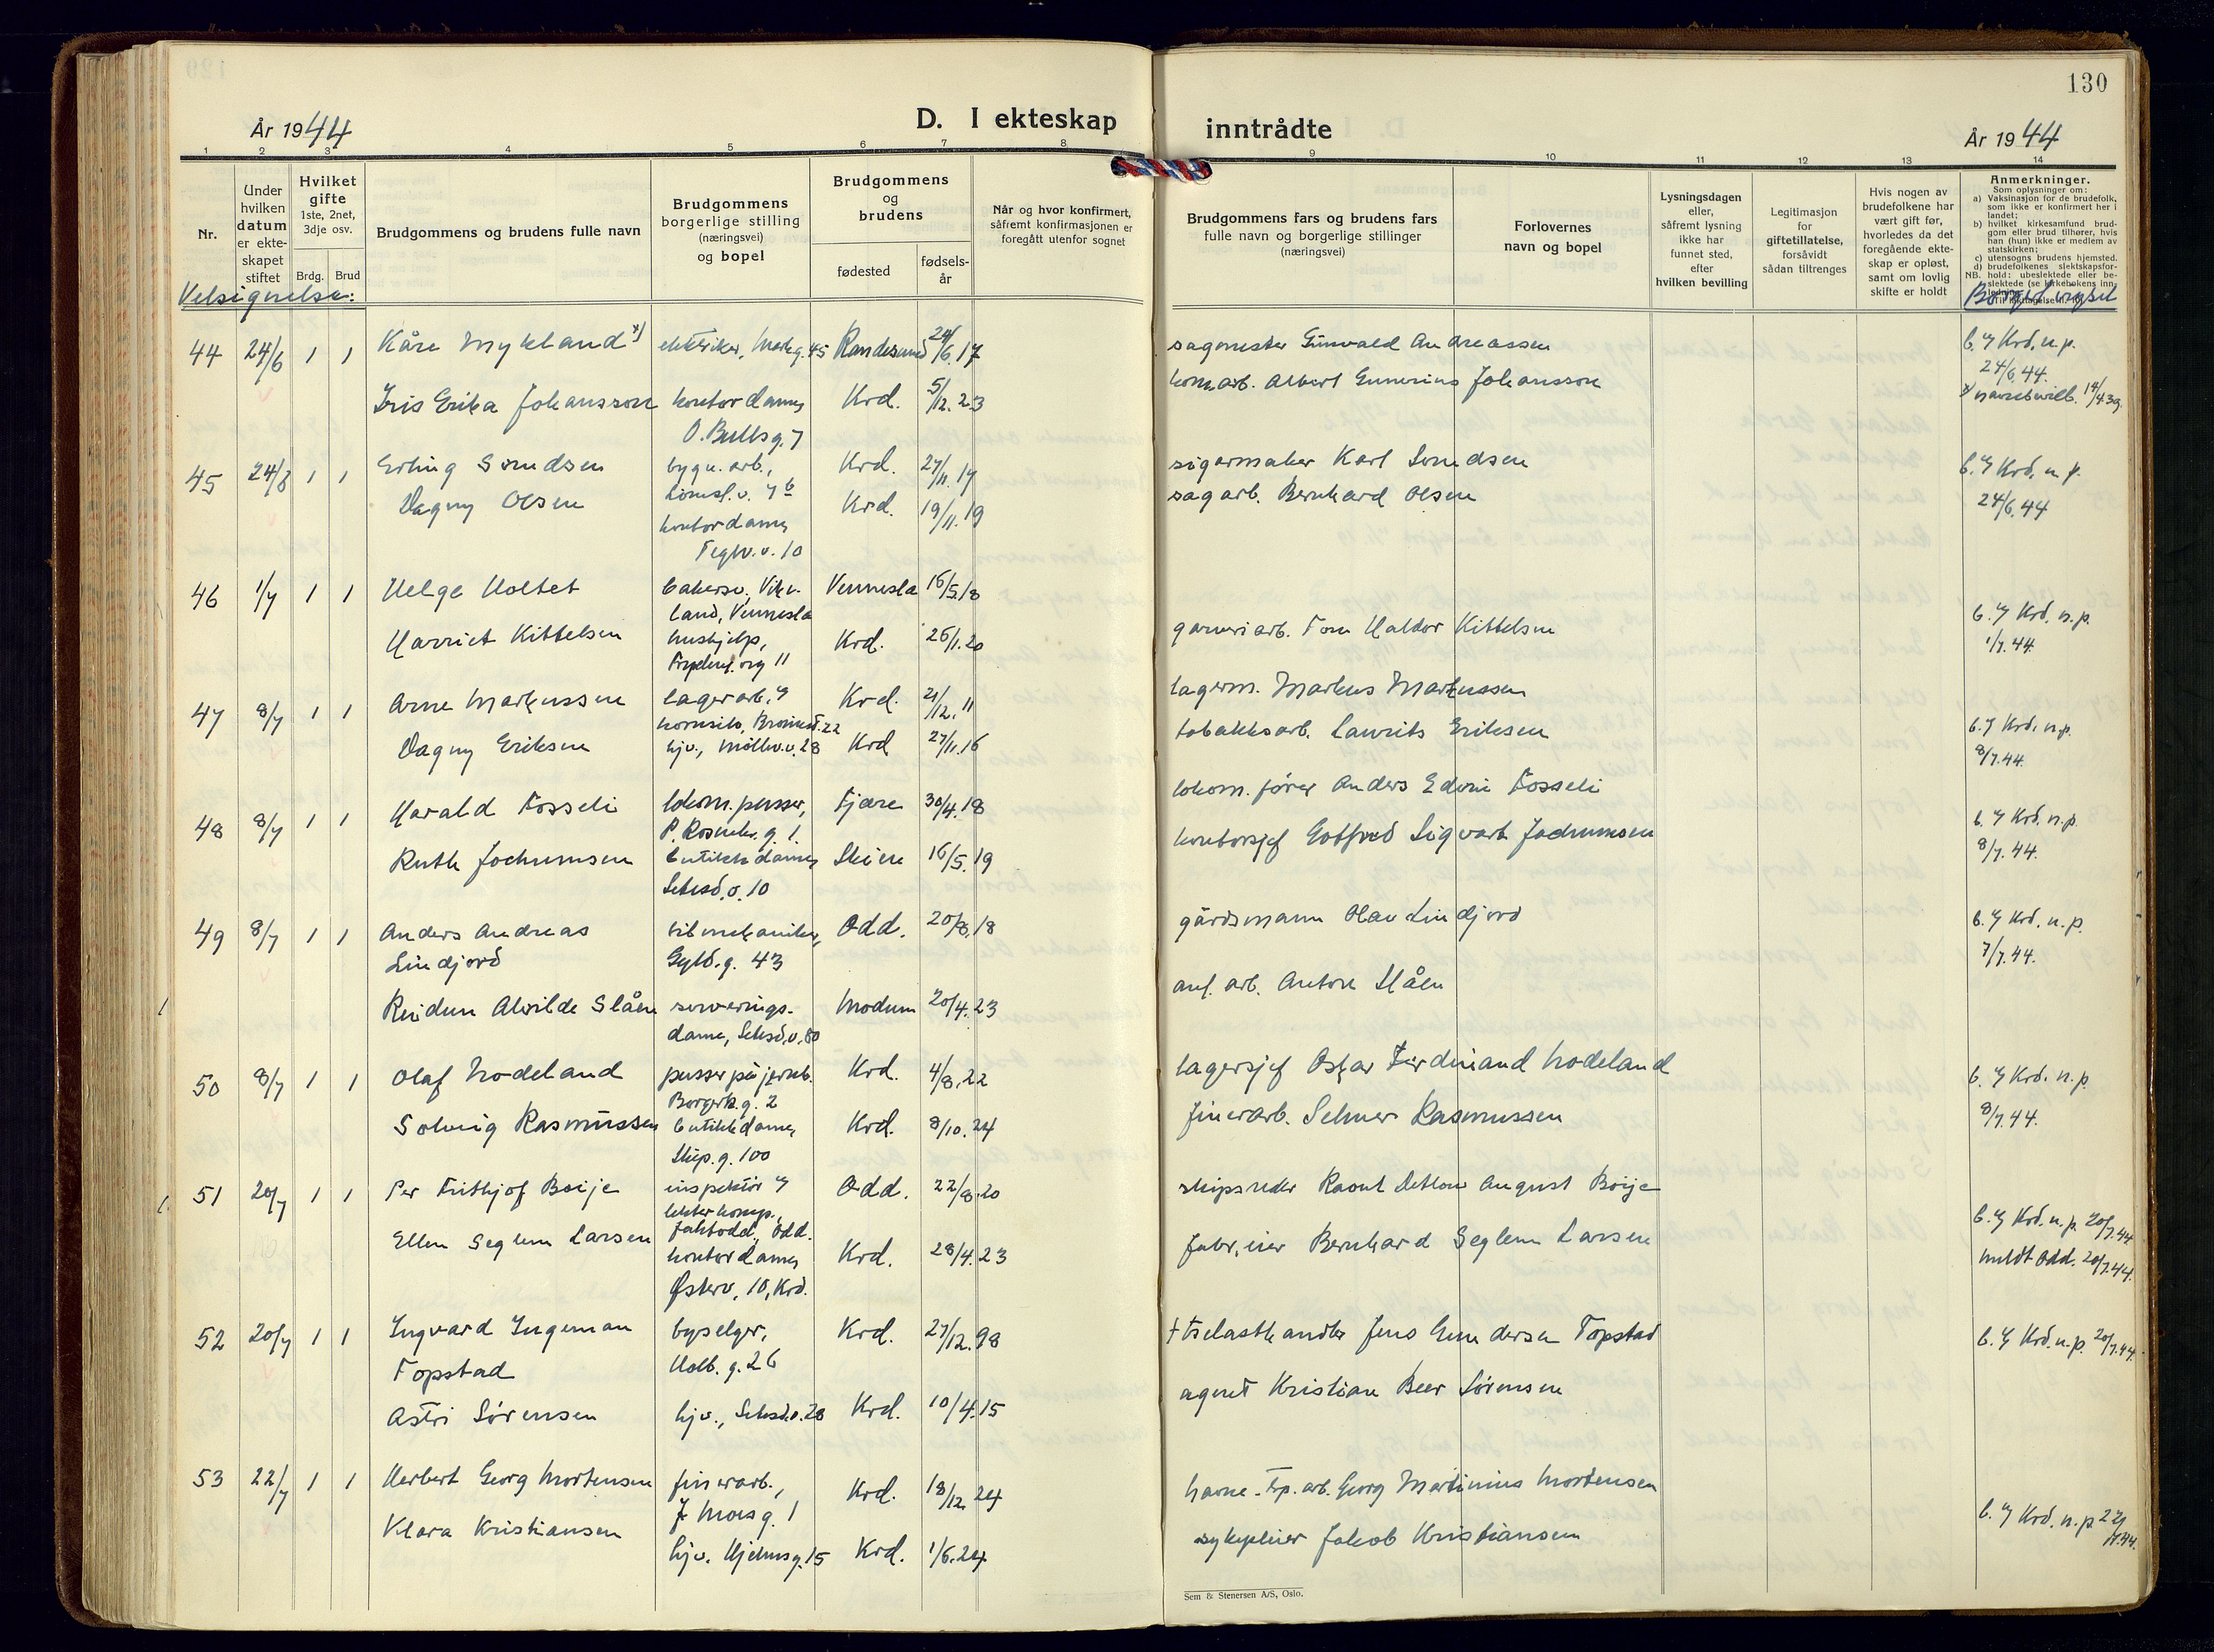 130
År 1944
D. I ekteskap
inntrådte
År 1944
1 2 3 4 5 6 7 8 9 10 11 12 13 14
Nr.
Under hvilken datum er ekteskapet stiftet
Hvilket gifte 1ste, 2net, 3dje osv.
Brdg. Brud
Brudgommens og brudens fulle navn
Brudgommens borgerlige stilling (næringsvei) og bopel
Brudgommens og brudens
fødested
fødselsår
Når og hvor konfirmert, såfremt konfirmasjonen er foregått utenfor sognet
Brudgommens fars og brudens fars fulle navn og borgerlige stillinger (næringsvei)
Forlovernes navn og bopel
Lysningsdagen eller, såfremt lysning ikke har funnet sted, efter hvilken bevilling
Legitimasjon for giftetillatelse, forsåvidt sådan tiltrenges
Hvis nogen av brudefolkene har vært gift før, hvorledes da det foregående ekteskap er opløst, samt om lovlig skifte er holdt
Anmerkninger.
Som oplysninger om:
a) Vaksinasjon for de brudefolk, som ikke er konfirmert her i landet;
b) hvilket kirkesamfund brudgom eller brud tilhører, hvis han (hun) ikke er medlem av statskirken;
c) utensogns brudens hjemsted.
d) brudefolkenes slektskapsforhold: ubeslektede eller beslektede (se kirkebokens inn-
NB.
Velsignelse:
44 24/6 1 1 Kåre Mykland x) elektriker, Markg. 45 Randesund 24/6.17 sagmester Gunvald Andreassen b. y Krd. n.p. 24/6.44.
Iris Erika Johansson kontordame, O. Bullsg. 7 Krd. 5/12.23 Albert Johansson x) navnebevill. 14/4 39.
45 24/6 1 1 Erling Svendsen bygn. arb., Krd. 27/11.17 sigarmaker Karl Svendsen b. y Krd. n.p. 24/6.44
Dagny Olsen kontordame, Teglv.v. 10 Krd. 19/11.19 sagarb. Bernhard Olsen
46 1/7 1 1 Helge Holtet bakersv., Vikeland, Vennesla Vennesla 16/5.18
Harriet Kittelsen hushjelp, 11 Krd. 26/1.20 garveriarb. Tom Haldor Kittelsen b. y Krd. n.p. 1/7.44.
47 8/7 1 1 Arne Markussen lagerarb. y kornsilo, 22 Krd. 21/12.11 lagerm. Markus Markussen
Dagny Eriksen hjv., Møllev.v. 28 Krd 27/11.16 tobakksarb. Laurits Eriksen b. y Krd. n.p. 8/7.44.
48 8/7 1 1 Harald Fosseli lokom. pusser, P. Rosenkr. g. 1. Fjære 30/4.18 lokom. fører Anders Edvin Fosseli
Ruth Jochumsen butikkdame, Setesd.v. 10 Skien 16/5.19 kontorsjef Gotfred Sigvart Jochumsen b. y Krd. n.p. 8/7.44.
49 8/7 1 1 Anders Andreas Lindjord bilmekaniker, Gyld.g. 43 Odd. 20/8.18 gårdsmann Olav Lindjord b. y Krd. n.p. 7/7.44.
Reidun Alvilde Slåen serveringsdame, Setesd.v. 80 Modum 20/4.23 anl. arb. Anton Slåen
50 8/7 1 1 Olaf Nodeland pusser på jernb. Borgerk.g. 2 Krd. 4/8.22 lagersjef Oskar Ferdinand Nodeland b. y Krd. n.p. 8/7.44.
Solveig Rasmussen butikkdame, Skip.g. 100 Krd. 8/10.24 finerarb. Selmer Rasmussen
51 20/7 1 1 Per Frithjof Boije inspektør y Odd. Odd. 22/8.20 skipsreder Raoul Detlow August Boije
Ellen Seglem Larsen kontordame, Østerv. 10, Krd. Krd. 28/4.23 Bernhard Seglem Larsen b. y Krd. n.p. 20/7.44 meldt Odd. 20/7.44.
52 20/7 1 1 Ingvard Ingeman Topstad byselger, Holb.g. 26 Krd. 27/12.98 † Jens Gundersen Topstad b. y Krd. n.p. 20/7.44.
Astri Sørensen hjv., Setesd.v. 28 Krd. 10/4.15 agent Kristian Beer Sørensen
53 22/7 1 1 Herbert Georg Mortensen finerarb., J. Moesg. 1 Krd. 18/12.24 Georg Martinius Mortensen
Klara Kristiansen hjv. 15 Krd. 1/6.24 sykepleier Jakob Kristiansen b. y Krd. n.p. 22/7.44.
Sem & Stenersen A/S, Oslo.